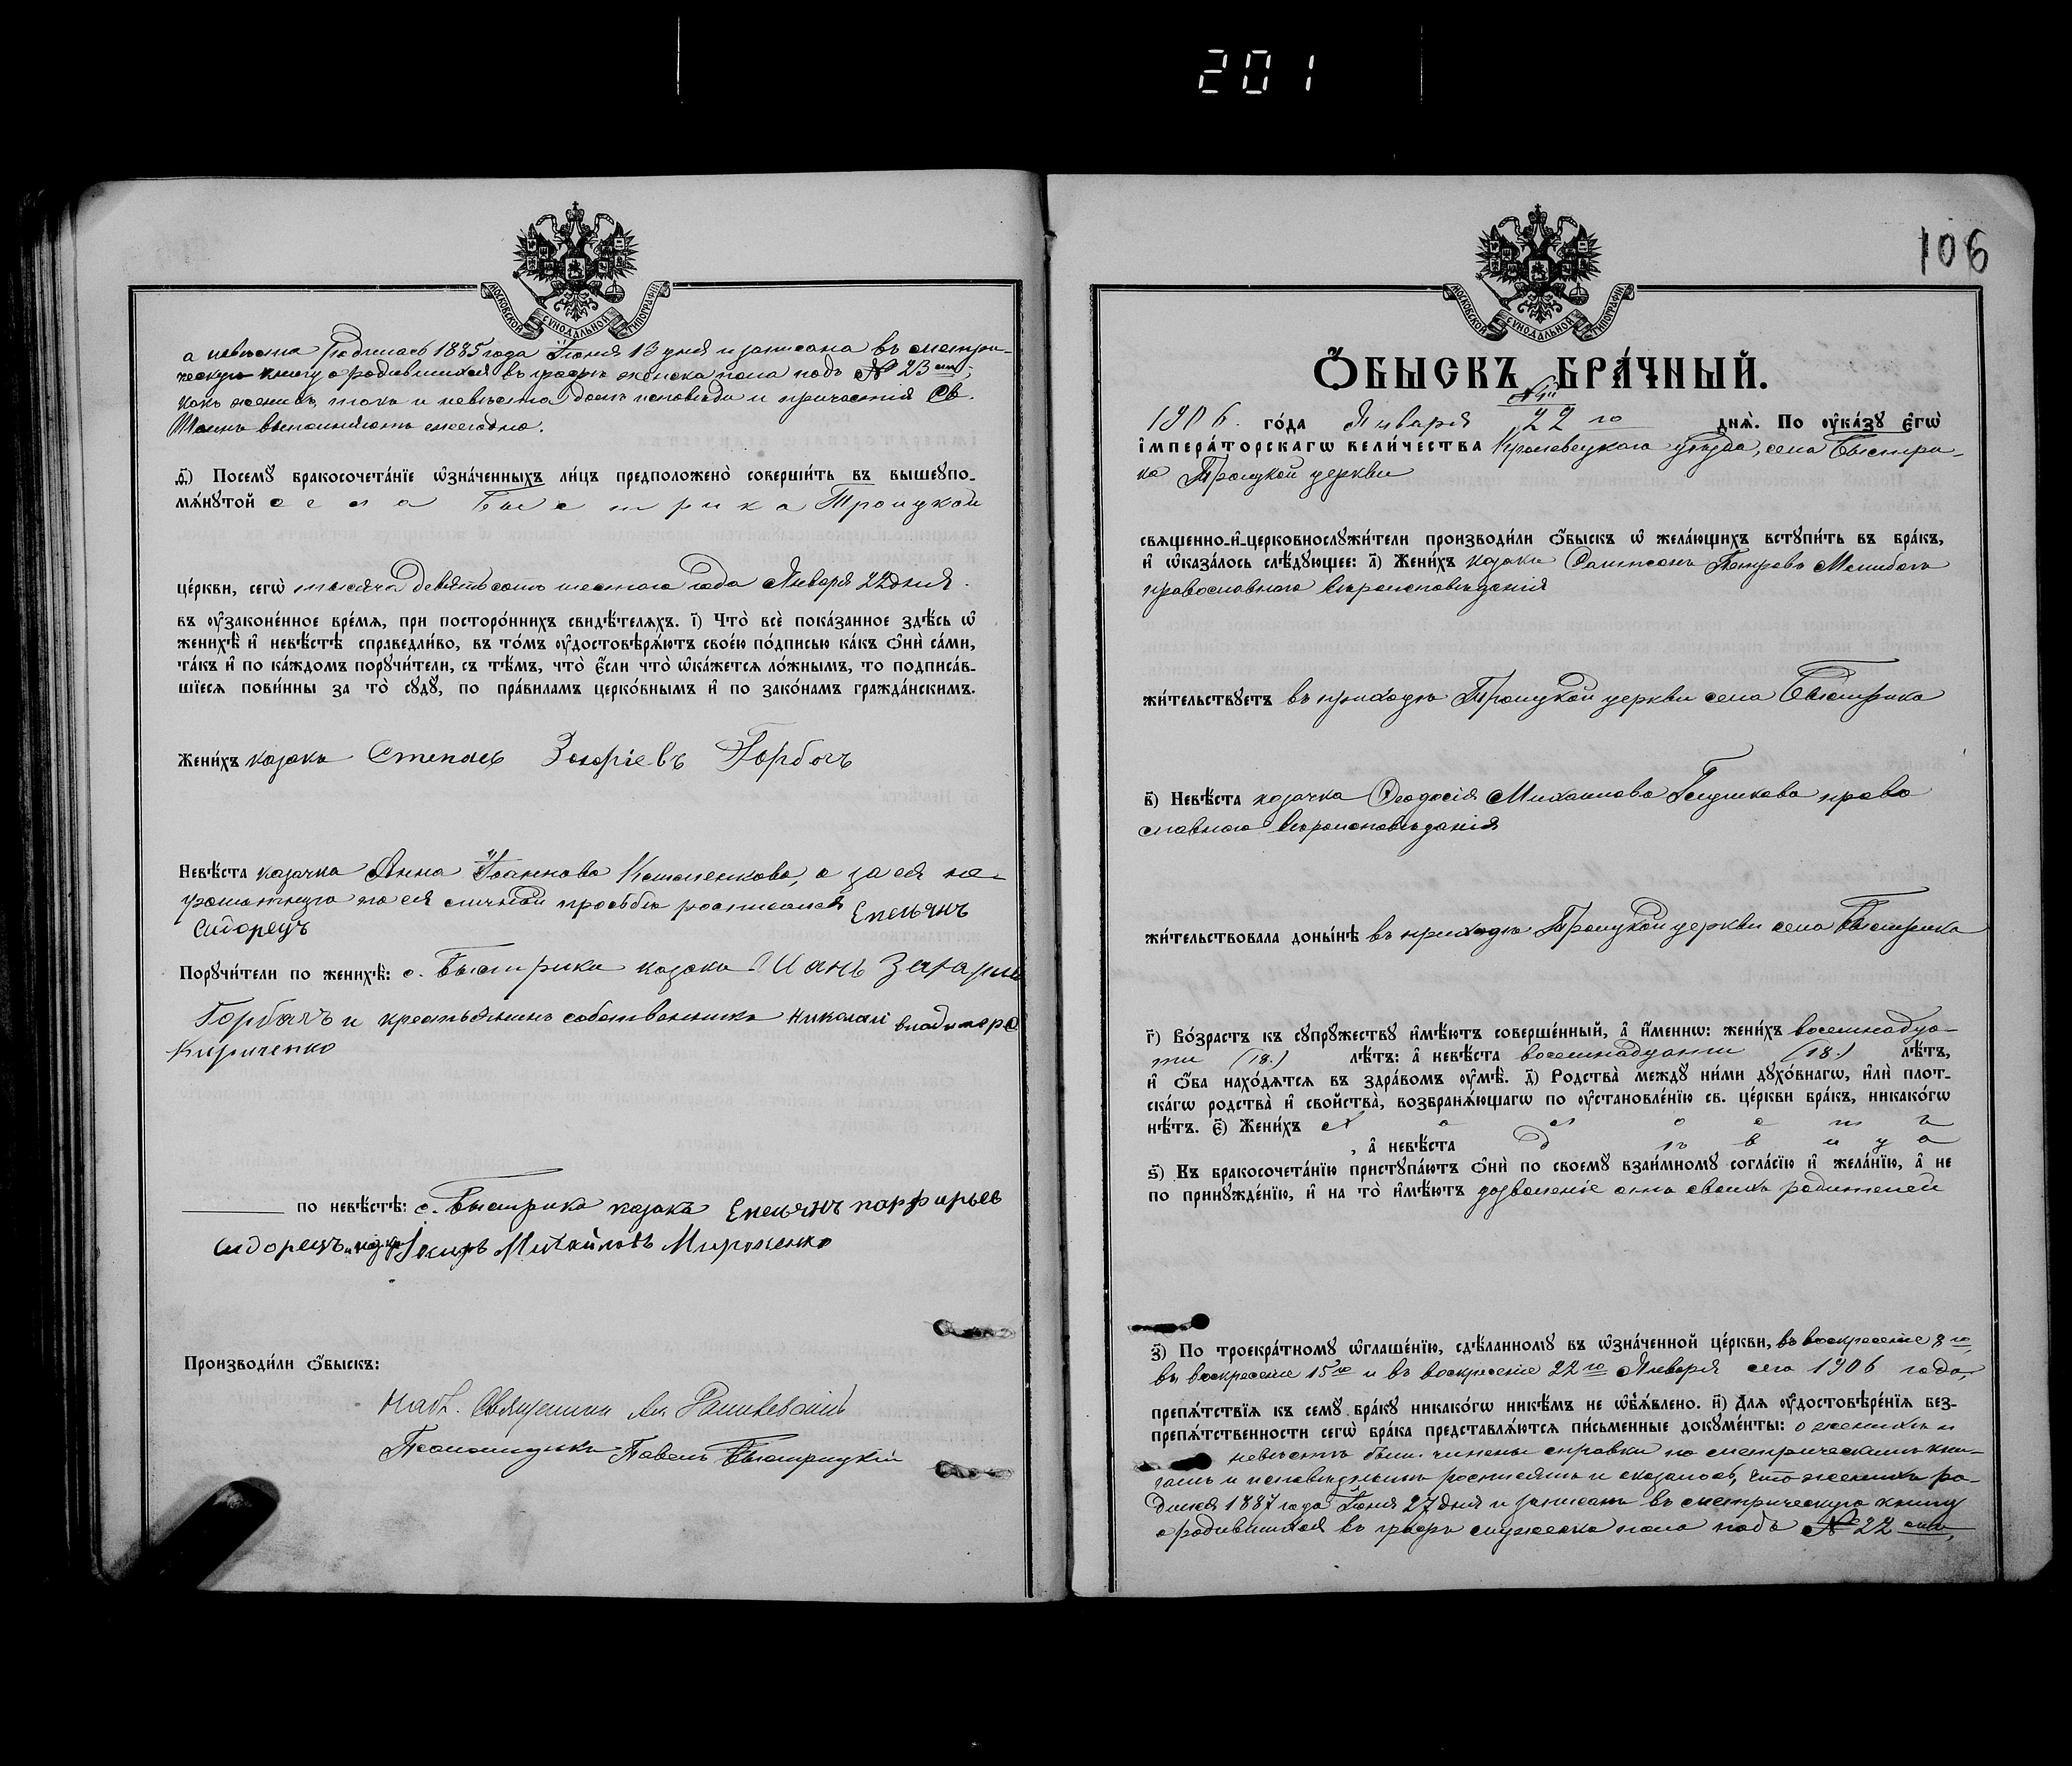 201
МОСКОВСКОЙ СѴНОДАЛЬНОЙ ТИПОГРАФІИ
а невѣста родилась 1885 года Іюня 13 дня и записана въ метри-
ческую книгу о родившихся въ графѣ женска пола подъ № 23 мъ.
какъ женихъ, такъ и невѣста долгъ исповѣди и причастія Св.
Таинъ выполняютъ ежегодно.
ѳ҃) Посемꙋ бракосочета́нїе ѡзна́ченныхъ ли́цъ предположено̀ соверши́ть въ вышеꙋпо-
мѧ́нꙋтой села Быстрика Троицкой
це́ркви, сегѡ̀ тысяча девятьсотъ шестого года Января 22 дня.
въ ᲂу҆зако́ненное вре́мѧ, при посторо́ннихъ свидѣ́телѧхъ. і҃) Что̀ всѐ пока́занное здѣ́сь ѡ҆
женихѣ̀ и҆ невѣ́стѣ справедли́во, въ то́мъ ᲂу҆достовѣрѧ́ютъ свое́ю по́дписью ка́къ ѻ҆нѝ са́ми,
та́къ и҆ по ка́ждомъ порꙋчи́тели, съ тѣ́мъ, что̀ є҆́сли что̀ ѡ҆ка́жетсѧ ло́жнымъ, то подписа́в-
шїесѧ пови́нны за то̀ сꙋдꙋ̀, по пра́виламъ церко́внымъ и҆ по зако́намъ гражда́нскимъ.
Жени́хъ казакъ Степанъ Захаріевъ Горбачъ
Невѣ́ста казачка Анна Іоаннова, а за ея не-
грамотную по ея личной просьбѣ росписался Емельянъ
Сидорецъ
Порꙋчи́тели по женихѣ̀: с. Быстрика казакъ Иванъ Захаріи
Горбачъ и крестьянинъ собственникъ Николай Владиміро
Кириченко
по невѣ́стѣ: с. Быстрика казакъ Емельянъ Парфирьев
Сидорецъ и казакъ Михайловъ Мироненко
Производи́ли ѻ҆́быскъ:
Священникъ Ал.
Псаломщикъ Павелъ Быстрицкій
106
МОСКОВСКОЙ СѴНОДАЛЬНОЙ ТИПОГРАФІИ
Ѻ҆́БЫСКЪ БРА́ЧНЫЙ.
1906. го́да Января 22 го днѧ̀. По ᲂу҆ка́зꙋ є҆гѡ̀
і҆мпера́торскагѡ вели́чества Кролевецкаго уѣзда, села Быстри-
ка Троицкой церкви
свѧщенно-и҆-церковнослꙋжи́тели производи́ли ѻ҆́быскъ ѡ҆ жела́ющихъ встꙋпи́ть въ бра́къ,
и҆ ѡ҆каза́лось слѣ́дꙋющее: а҃) Жени́хъ казакъ Сампсонъ Петровъ
православнаго вѣроисповѣданія
жи́тельствꙋетъ въ приходѣ Троицкой церкви села Быстрика
в҃) Невѣ́ста казачка Ѳеодосія Михаилова Глушкова право
славнаго вѣроисповѣданія
жи́тельствовала доны́нѣ въ приходѣ Троицкой церкви села Быстрика
г҃) Во́зрастъ къ сꙋпрꙋ́жествꙋ и҆мѣ́ютъ соверше́нный, а҆ и҆́меннѡ: жени́хъ восемнадца-
ти (18.) лѣ́тъ: а҆ невѣ́ста восемнадцати (18.) лѣ́тъ,
и҆ ѻ҆́ба нахо́дѧтсѧ въ здра́вомъ ᲂу҆мѣ̀. д҃) Родства̀ междꙋ ни́ми дꙋхо́внагѡ, и҆лѝ плот-
ска́гѡ родства̀ и҆ свойства̀, возбранѧ́ющагѡ по ᲂу҆становле́нїю св. це́ркви бра́къ, никако́гѡ
нѣ́тъ. є҃) Жени́хъ холостъ
, а҆ невѣ́ста дѣвица
ѕ҃) Къ бракосочета́нїю пристꙋпа́ютъ ѻ҆нѝ по своемꙋ взаи́мномꙋ согла́сїю и҆ жела́нїю, а҆ не
по принꙋжде́нїю, и҆ на то̀ и҆мѣ́ютъ дозволеніе отъ своихъ родителей
з҃) По троекра́тномꙋ ѡ҆глаше́нїю, сдѣ́ланномꙋ въ ѡ҆зна́ченной це́ркви, въ воскресеніе 8 го,
въ воскресеніе 15 го и въ воскресеніе 22 го Января сего 1906 года,
препѧ́тствїѧ къ семꙋ бра́кꙋ никако́гѡ никѣ́мъ не ѡ҆б̾ѧ́влено. и҃) Длѧ ᲂу҆достовѣре́нїѧ без-
препѧ́тственности сегѡ̀ бра́ка представлѧ́ютсѧ пи́сьменные докꙋме́нты: о женихѣ и
невѣстѣ были чинены справки по метрическимъ кни-
гамъ и исповѣднымъ росписямъ и оказалось, что женихъ ро-
дился 1887 года Іюня 27 дня и записанъ въ метрическую книгу
о родившихся въ графѣ мужеска пола подъ № 22 мъ,